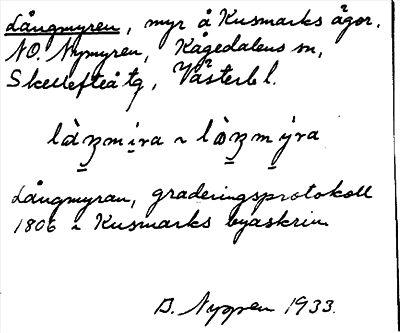 Långmyren, myr å Kusmarks ägor,
NO. Nymyren, Kågedalens sn,
Skellefteå tg, Västerb l.
làŋmi̱ra ~ lòŋmýra
Långmyran, graderingsprotokoll
1806 i Kusmarks byaskrin
B. Nygren 1933.